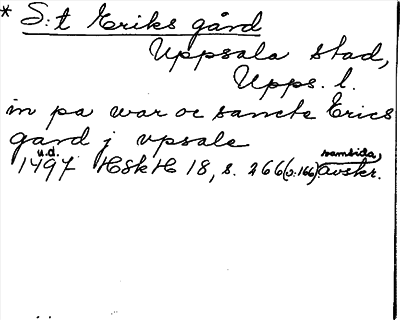 * S:t Eriks gård
Uppsala stad,
Upps. l.
in pa war oc sancte Erics
gard j vpsale
u.d. samtida,
1497 HSkH 18, s. 266 (o: 166). avskr.